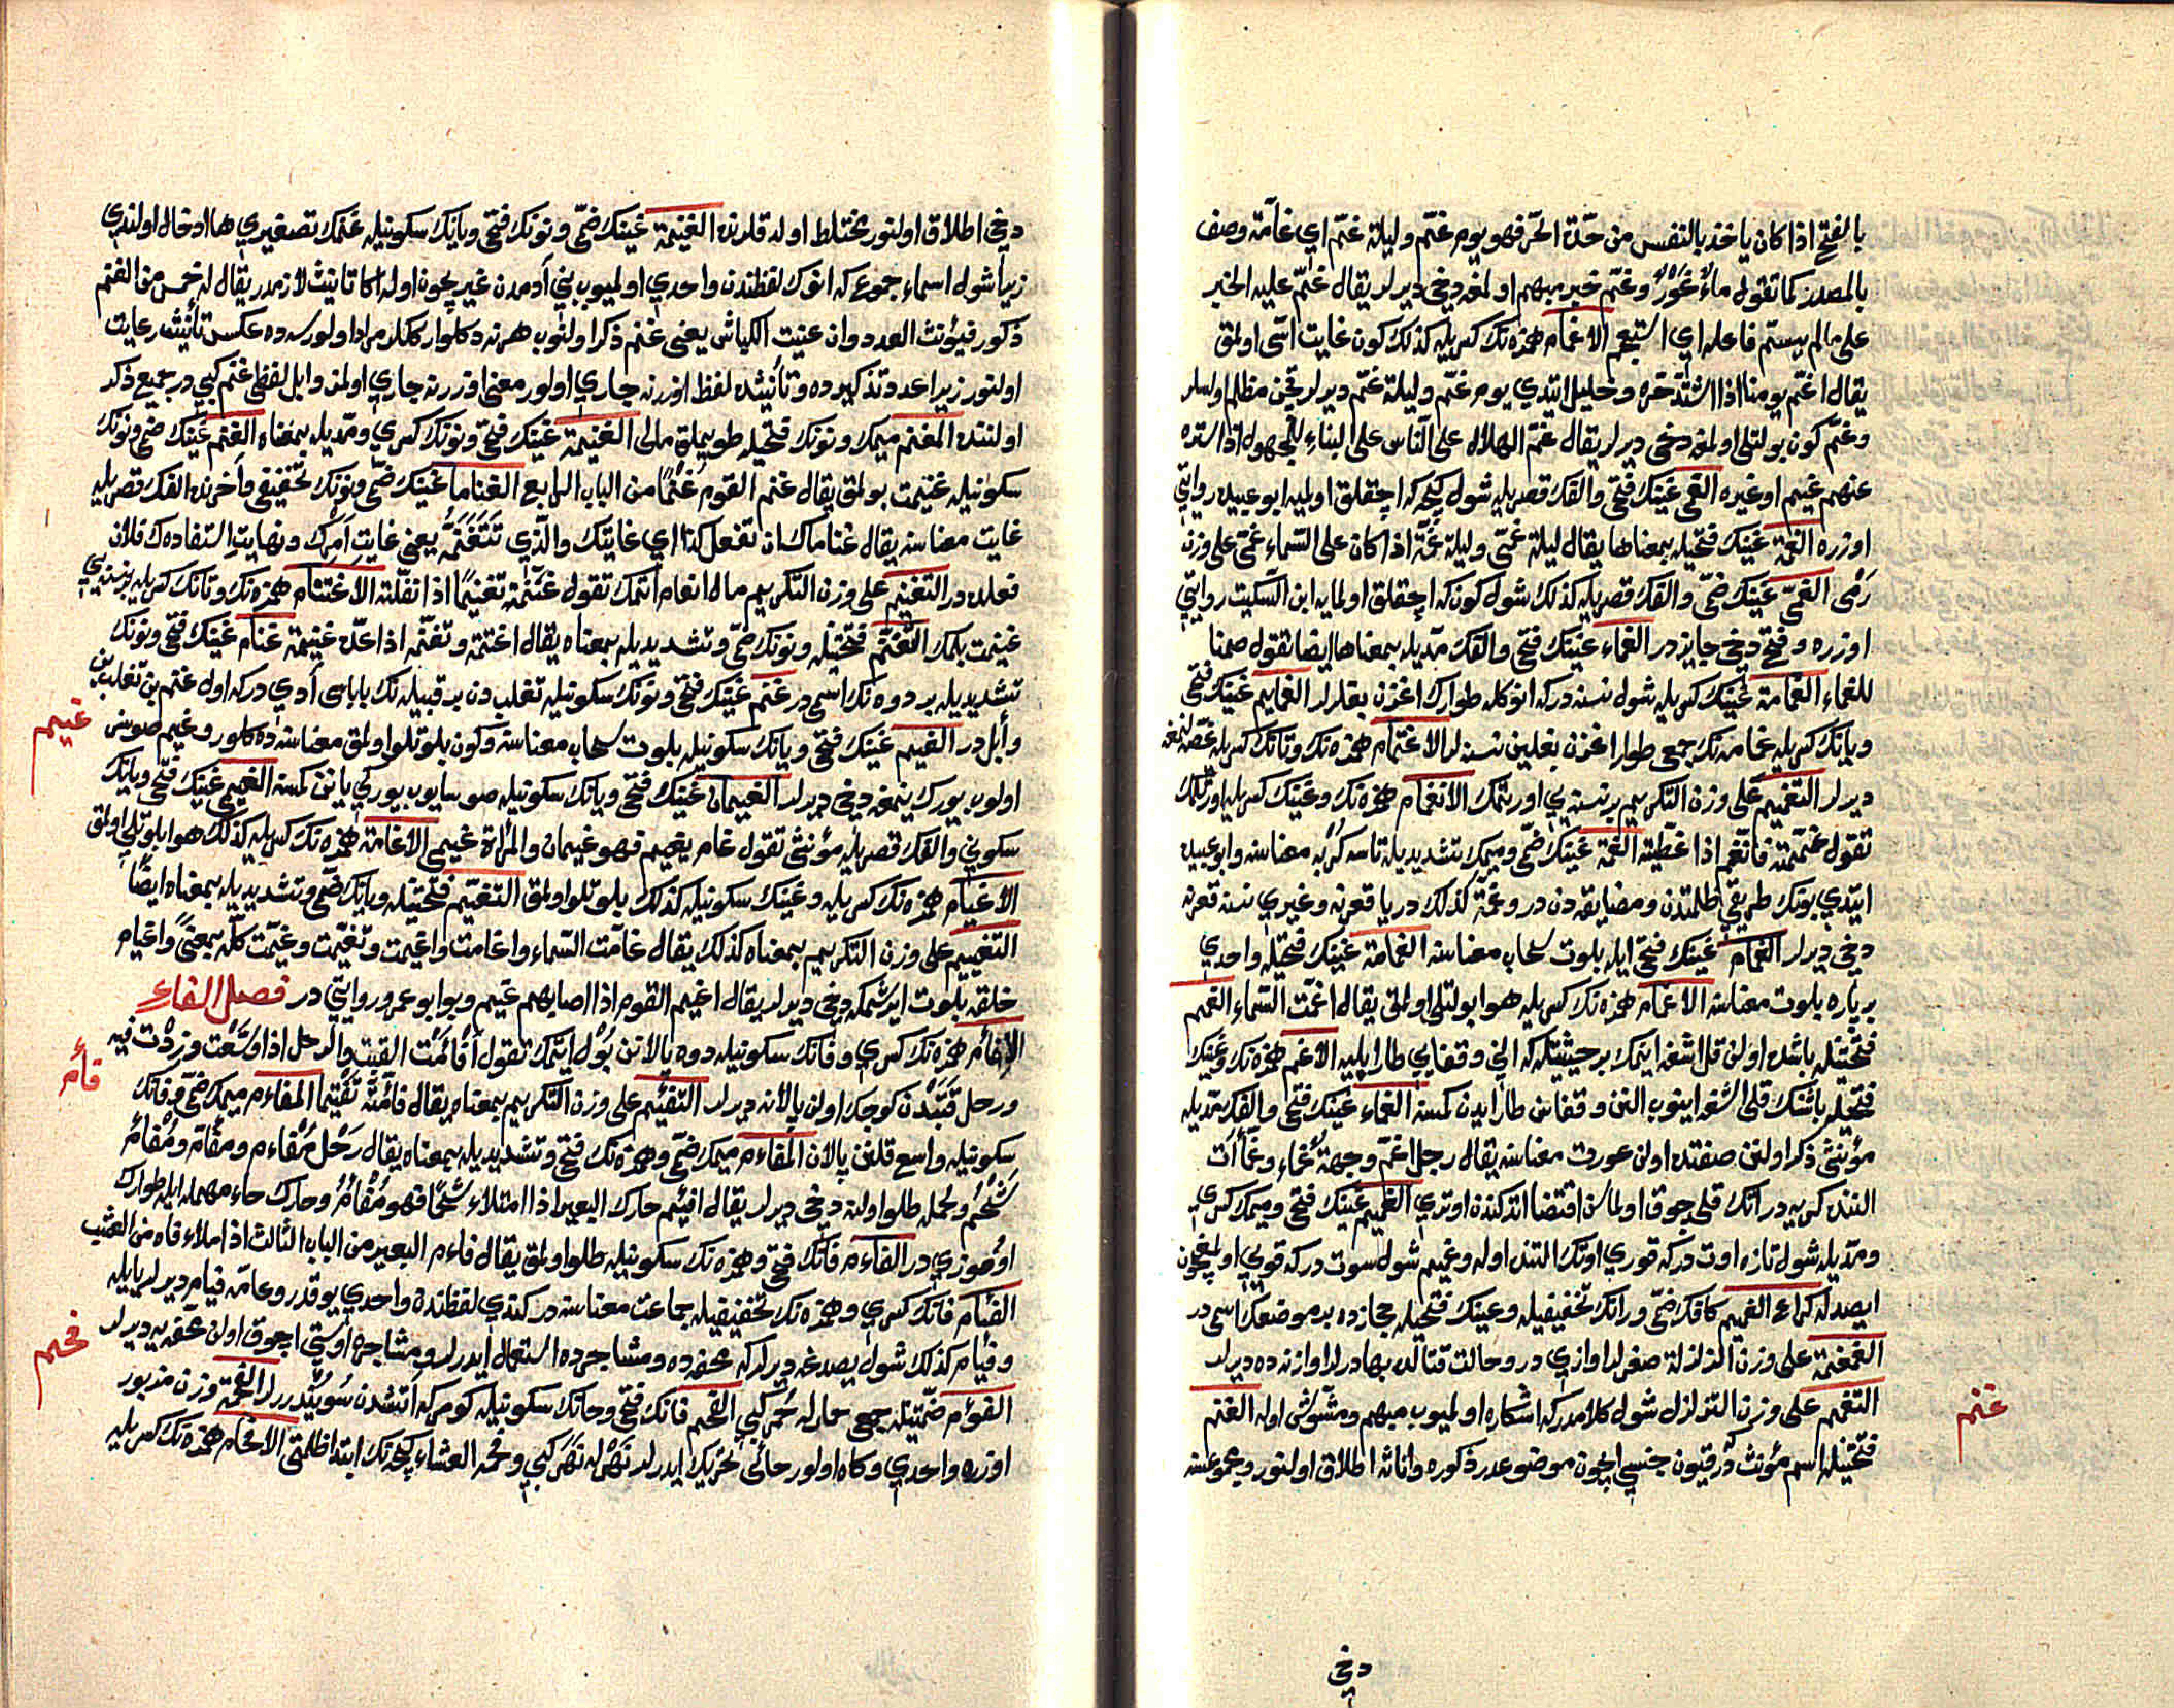 بالفتح اذا كان ياخذ بالنفس من حدّة الحرّ فهو يوم غمّ وليلة غمّ اي غامّة وصف
بالمصدر كما تقول ماءٌ غَوْرٌ وغمّ خبر مبهم اولمغه دخي ديرلر يقال غُمّ عليه الخبر
على مالم يسمّ فاعله اي استعجم الاغمام همزه نك كسريله كذلك كون غايت اسّى اولمق
يقال اغمّ يومنا اذا اشتدّ حرّه وخليل ايتدي يوم غمّ وليلة غمّ ديرلر قچن مظلم اولسلر
وغمّ كون بولتلى اولمغه دخى ديرلر يقال غمّ الهلال على النّاس على البناء للمجهول اذا ستره
عنهم غيم او غيره الغمى غينك فتحي والفك قصريله شول كيجه كه اچقلق اوليه ابو عبيد روايتي
اوزره الغمّة غينك فتحيله بمعناها يقال ليلة غمّى وليلة غمّة اذا كان على السّماء غمى على وزن
رَمْى الغمّى غينك ضمّي والفك قصريله كذلك شول كون كه اچقلق اولمايه ابن السكيت روايتي
اوزره وفتح دخي جايز در الغمّاء غينك فتحي والفك مدّيله بمعناها ايضا تقول صمنا
للغمّاء الغمامة غينك كسريله شول نسنه دركه انوكله طوارك اغزن بغلرلر الغمايم غينك فتحي
ويانك كسريله غمامه نك جمعي طوار اغزن بغلين نسنه لر الاغتمام همزه نك وتانك كسريله غصّه لنمغه
ديرلر التغميم على وزن التكريم بر نسنه يي اورتمك الانغمام همزه نك وغينك كسريله اورتلمك
تقول غممته فانغم اذا غطّيته الغمّة غينك ضمّي وميمك تشديديله تاسه كُربه معناسنه وابو عبيد
ايتدي بونك طريقي ظلمتدن ومضايقه دن در وغمّة كذلك دريا قعرنه وغيري نسنه قعرنه
دخي ديرلر الغمام غينك فتحي ايله بلوت سحاب معناسنه الغمامة غينك فتحيله واحدي
بر پاره بلوت معناسنه الاغمام همزه نك كسريله هوا بولتلى اولمق يقال اغمّت السّماء الغمم
فتحتيله باشده اولن قل اشغه اينمك بر حيثيتله كه الني وقفايي طار ايليه الاغمّ همزه نك وغينك
فتحيله باشنك قلى اشغه اينوب النن وقفاسن طار ايدن كمسه الغمّاء غينك فتحي والفك مدّيله
مؤنثى ذكر اولنن صفتده اولن عورت معناسنه يقال رجل اغمّ وجبهة غمّاء وغمّاآت
التنده كريه در انك قلى چوق اولماسن اقتضا اتدكندن اوتري الغميم غينك فتحي وميمك كسري
ومدّيله شول تازه اوت دركه قوري اوتك التنده اوله وغميم شول سوت دركه قويي اولمغيچون
ايصدله كراع الغميم كافك ضمّي ورانك تخفيفيله وعينك فتحيله حجازده بر موضعك اسمى در
الغمغمة على وزن الزلزلة صغرلر اوازي در وحالت قتالده بهادرلر اوازنه ده ديرلر
التغمغم على وزن التزلزل شول كلامدركه اشكاره اولميوب مبهم ومشوّش اوله الغنم
فتحتيله اسم مؤنث در قيون جنسي اچون موضوعدر ذكوره واناثه اطلاق اولنور ومجموعنه
غنم
دخي
دخي اطلاق اولنور مختلط اوله قلرنده الغنيمة غينك ضمّي ونونك فتحي ويانك سكونيله غنمك تصغيري ها ادخال اولندي
زيرا شول اسماء جموع كه انوك لفظندن واحدي اولميوب بني آدمدن غير يچون اوله اكا تانيث لازمدر يقال له خمس من الغنم
ذكور فيؤنث العدد وان عنيت الكباش يعني غنم ذكر اولنوب هر نه دكلو ارككلر مراد اولورسه ده عكس تأنيث رعايت
اولنور زيرا عدد تذكيرده وتأنيثده لفظ اوزرنه جاري اولور معنى اوزرنه جاري اولمز وابل لفظي غنم كبي در جميع ذكر
اولننده المغنم ميمك ونونك فتحيله طويملق مالى الغنيمة غينك فتحي ونونك كسري ومدّيله بمعناه الغنم غينك ضمّي ونونك
سكونيله غنيمت بولمق يقال غنم القوم غُنْمًا من الباب الرابع الغناما غينك ضمّي ونونك تخفيفي وآخرنده الفك قصريله
غايت معناسنه يقال غناماك ان تفعل كذا اي غايتك والّذي تَتَغَنَّمُه يعني غايت امرك ونهايت استفادك فلان
فعلده در التغنيم على وزن التكريم مال انعام اتمك تقول غنّمته تغنيمًا اذا نفّلته الاغتنام همزه نك وتانك كسريله بر نسنه يي
غنيمت بلمك التغنّم فتحتيله ونونك ضمّي وتشديديله بمعناه يقال اغتنمه وتغنّمه اذا عدّه غنيمة غنام غينك فتحي ونونك
تشديديله بر دوه نك اسمى در غنم غينك فتحي ونونك سكونيله تغلب دن بر قبيله نك باباسى آدي دركه اول غنم بن تغلب بن
وائل در الغيم غينك فتحي ويانك سكونيله بلوت سحاب معناسنه وكون بلوتلو اولمق معناسنه ده كلور وغيم صوسز
غيم
اولوب يورك ينمغه دخي ديرلر الغيمان غينك فتحي ويانك سكونيله صوسايوب يوركي يانن كمسه الغيمى غينك فتحي ويانك
سكوني والفك قصريله مؤنثى تقول غام يغيم فهو غيمان والمرأة غيمى الاغامة همزه نك كسريله كذلك هوا بلوتلى اولمق
الاغيام همزه نك كسريله وغينك سكونيله كذلك بلوتلو اولمق التغيّم فتحتيله ويانك ضمّي وتشديديله بمعناه ايضًا
التغييم على وزن التكريم بمعناه كذلك يقال غامت السّماء واغامت واغيمت وتغيّمت وغيّمت كلّه بمعنًى واغيام
خلقه بلوت ايرشمكه دخي ديرلر يقال اغيم القوم اذا اصابهم غيم وبو ابو عمرو روايتي در فصل الفاء
الافآم همزه نك كسري وفانك سكونيله دوه پالانن بول ايتمك تقول اَفْأَمْتُ القتب والرحل اذا وسّعت وزدت فيه
فأم
ورحل قتبدن كوچك اولن پالانه ديرلر التفئيم على وزن التكريم بمعناه يقال فأّمته تفئيما المفاءم ميمك ضمّي وفانك
سكونيله واسع قلنن پالان المفاءم ميمك ضمّي وهمزه نك فتحي وتشديديله بمعناه يقال رَحْل مُفْاءم ومفأّم ومُفْأَمٌ
شَحْمُ ولحمله طلو اولنه دخي ديرلر يقال افئم حارك البعير اذا امتلاء شحمًا فهو مُفْأَمٌ وحارك حاء مهمله ايله طوارك
اوموزي در الفاءم فانك فتحي وهمزه نك سكونيله طلو اولمق يقال فاءم البعير من الباب الثالث اذا ملاء فاه من العشب
الفئام فانك كسري وهمزه نك تخفيفيله جماعت معناسنه در كندي لفظندن واحدي يوقدر وعامّه فيام ديرلر يايله
وفيام كذلك شول يصدغه ديرلركه محفّه ده ومشاجرده استعمال ايدرلر ومشاجر اوستى اچوق اولن محفّه يه ديرلر
فحم
الفؤم ضمّتيله جمعى حمارله حُمر كبي الفحم فانك فتحي وحانك سكونيله كومر كه آتشدن سوينديررلر الفحمة وزن مزبور
اوزره واحدي وكاه اولور حائى تحريك ايدرلر نَهْرله نَهَر كبي وفحمة العشاء كيجه نك ابتدا ظلمتى الافحام همزه نك كسريله